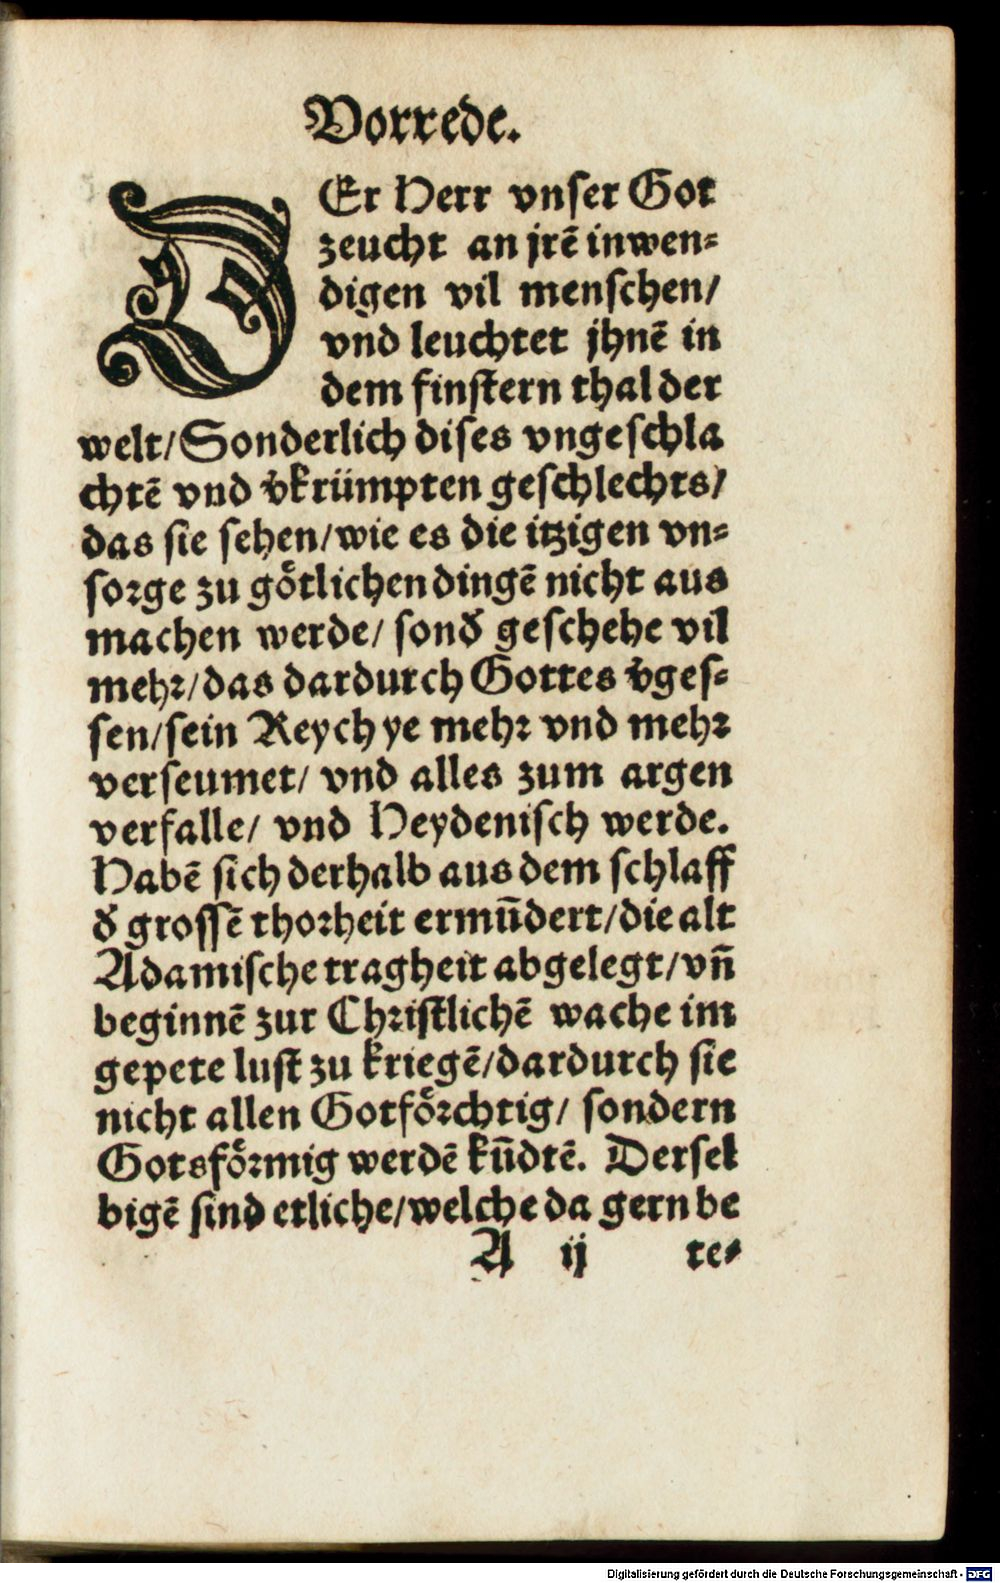 Vorrede.
DEr Herr vnser Got
zeucht an jrē inwen⸗
digen vil menschen/
vnd leuchtet jhnē in
dem finstern thal der
welt/Sonderlich dises vngeschla
chtē vnd v̄krümpten geschlechts/
das sie sehen/wie es die itzigen vn⸗
sorge zu goͤtlichen dingē nicht aus
machen werde/ sond̄ geschehe vil
mehr/das dardurch Gottes v̄ges⸗
sen/sein Reych ye mehr vnd mehr
verseumet/ vnd alles zum argen
verfalle/ vnd Heydenisch werde.
Habē sich derhalb aus dem schlaff
d̄ grossē thorheit ermūdert/die alt
Adamische tragheit abgelegt/vn̄
beginnē zur Christlichē wache im
gepete lust zu kriegē/dardurch sie
nicht allen Gotfoͤrchtig/ sondern
Gotsfoͤrmig werdē kūdtē. Dersel
bigē sind etliche/welche da gern be
A ij te⸗
Digitalisierung gefördert durch die Deutsche Forschungsgemeinschaft - DFG